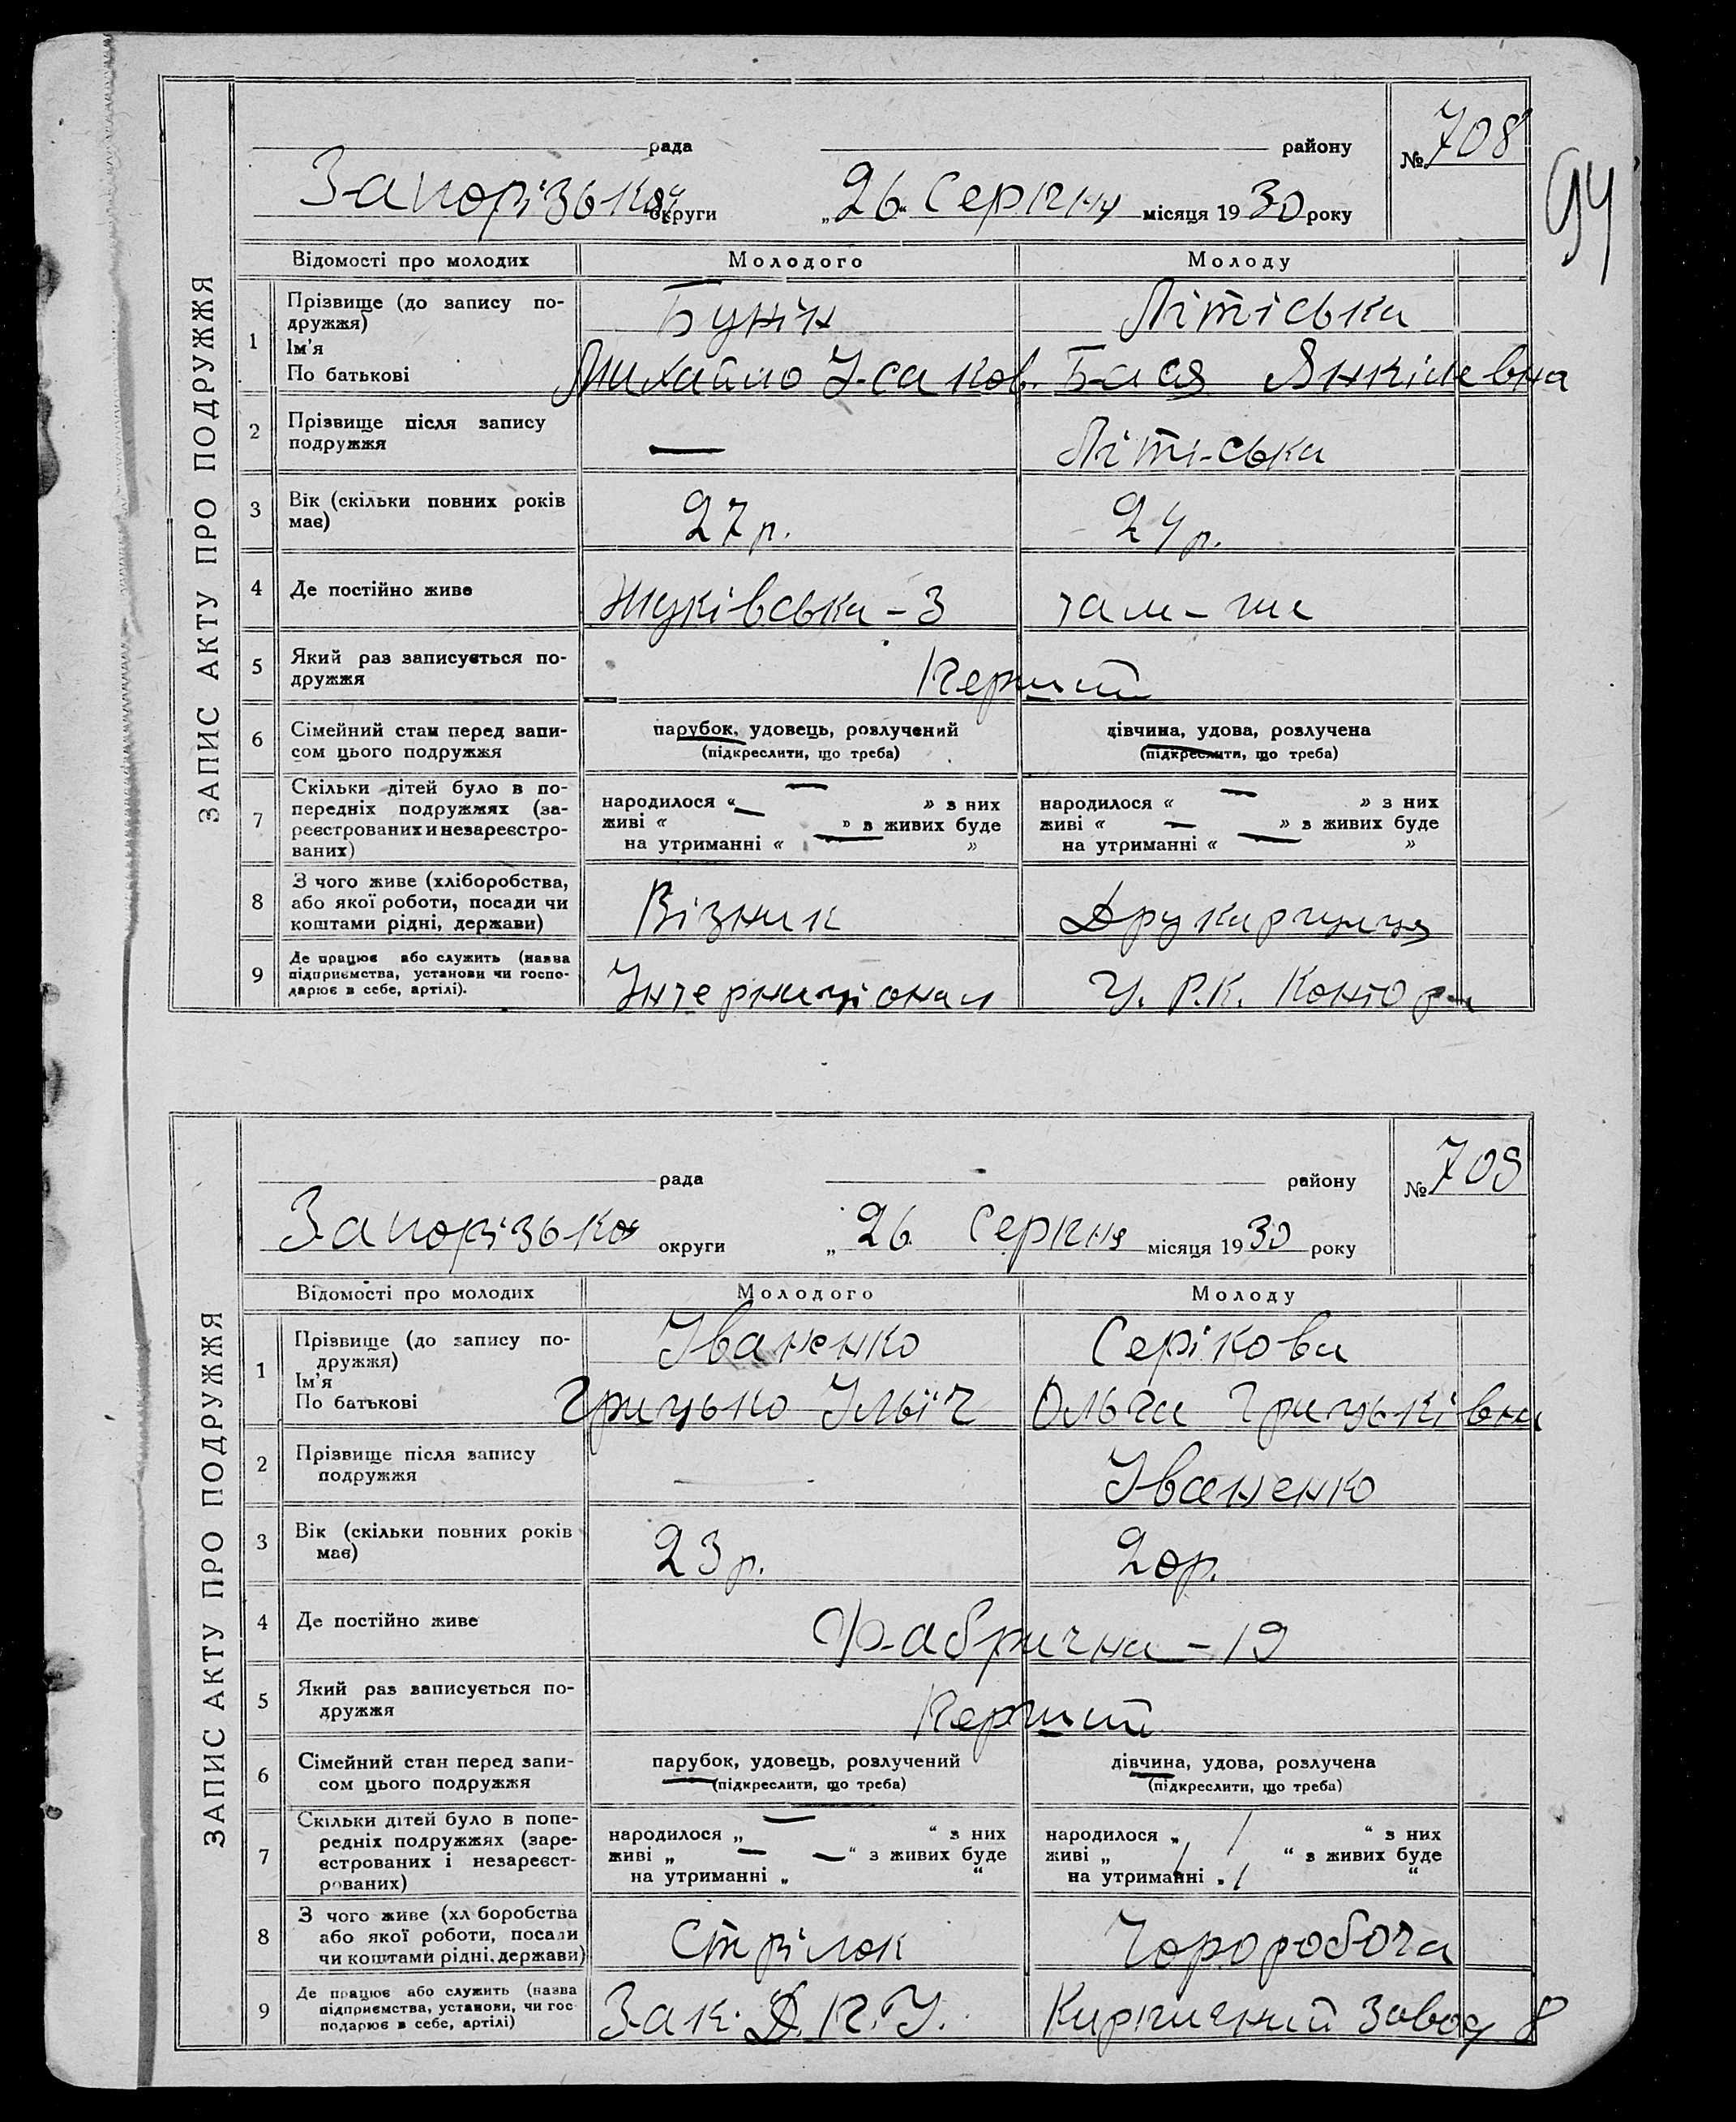 94
ЗАПИС АКТУ ПРО ПОДРУЖЖЯ
рада району № 708
Запорізької округи „26“ Серпня місяця 1930 року
Відомості про молодих Молодого Молоду
1 Прізвище (до запису по-
дружжя)
Ім'я
По батькові
Бунін
Михайло Ісаков.
Літіська
Бася Янкілевна
2 Прізвище після запису
подружжя
—
Літіська
3 Вік (скільки повних років
має)
27 р.
24 р.
4 Де постійно живе
Жуківська - 3
там - же
5 Який раз записується по-
дружжя
Перший
6 Сімейний стан перед запи-
сом цього подружжя
парубок, удовець, розлучений
(підкреслити, що треба)
дівчина, удова, розлучена
(підкреслити, що треба)
7 Скільки дітей було в по-
передніх подружжях (за-
реєстрованих и незареєстро-
ваних)
народилося « — » з них
живі « — » з живих буде
на утриманні « — »
народилося « — » з них
живі « — » з живих буде
на утриманні « — »
8 З чого живе (хліборобства,
або якої роботи, посади чи
коштами рідні, держави)
Візник
Друкарниця
9 Де працює або служить (назва
підприємства, установи чи госпо-
дарює в себе, артілі).
Інтернаціонал
У. Р.К. Контора
ЗАПИС АКТУ ПРО ПОДРУЖЖЯ
рада району № 709
Запорізької округи „26 Серпня місяця 1930 року
Відомості про молодих Молодого Молоду
1 Прізвище (до запису по-
дружжя)
Ім'я
По батькові
Іваненко
Грицько Ільїч
Серікова
Ольга Грицьківна
2 Прізвище після запису
подружжя
—
Іваненко
3 Вік (скільки повних років
має)
23 р.
20 р.
4 Де постійно живе
Фабрична - 19
5 Який раз записується по-
дружжя
Перший
6 Сімейний стан перед запи-
сом цього подружжя
парубок, удовець, розлучений
(підкреслити, що треба)
дівчина, удова, розлучена
(підкреслити, що треба)
7 Скільки дітей було в попе-
редніх подружжях (заре-
єстрованих і незареєст-
рованих)
народилося „ — “ з них
живі „ — — “ з живих буде
на утриманні „ “
народилося „ / “ з них
живі „ / “ з живих буде
на утриманні „ / “
8 З чого живе (хл боробства
або якої роботи, посади
чи коштами рідні, держави)
Стрілок
Чороробоча
9 Де працює або служить (назва
підприємства, установи, чи гос
подарює в себе, артілі)
Зак. Д.П.У.
Кирпичний завод 8